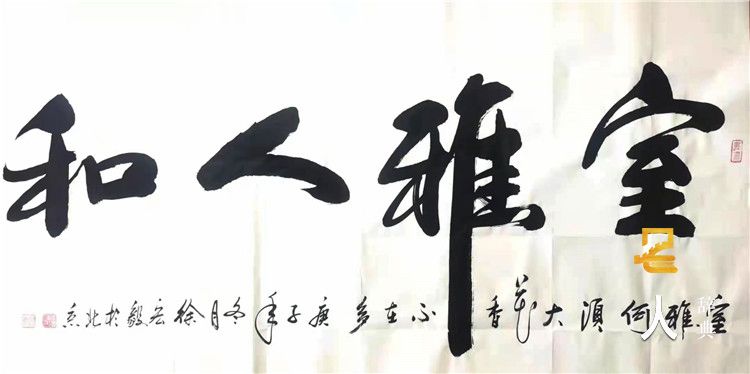 室雅人和
室雅何須大花香不在多庚子年冬月徐宏毅於北京
人
辞典